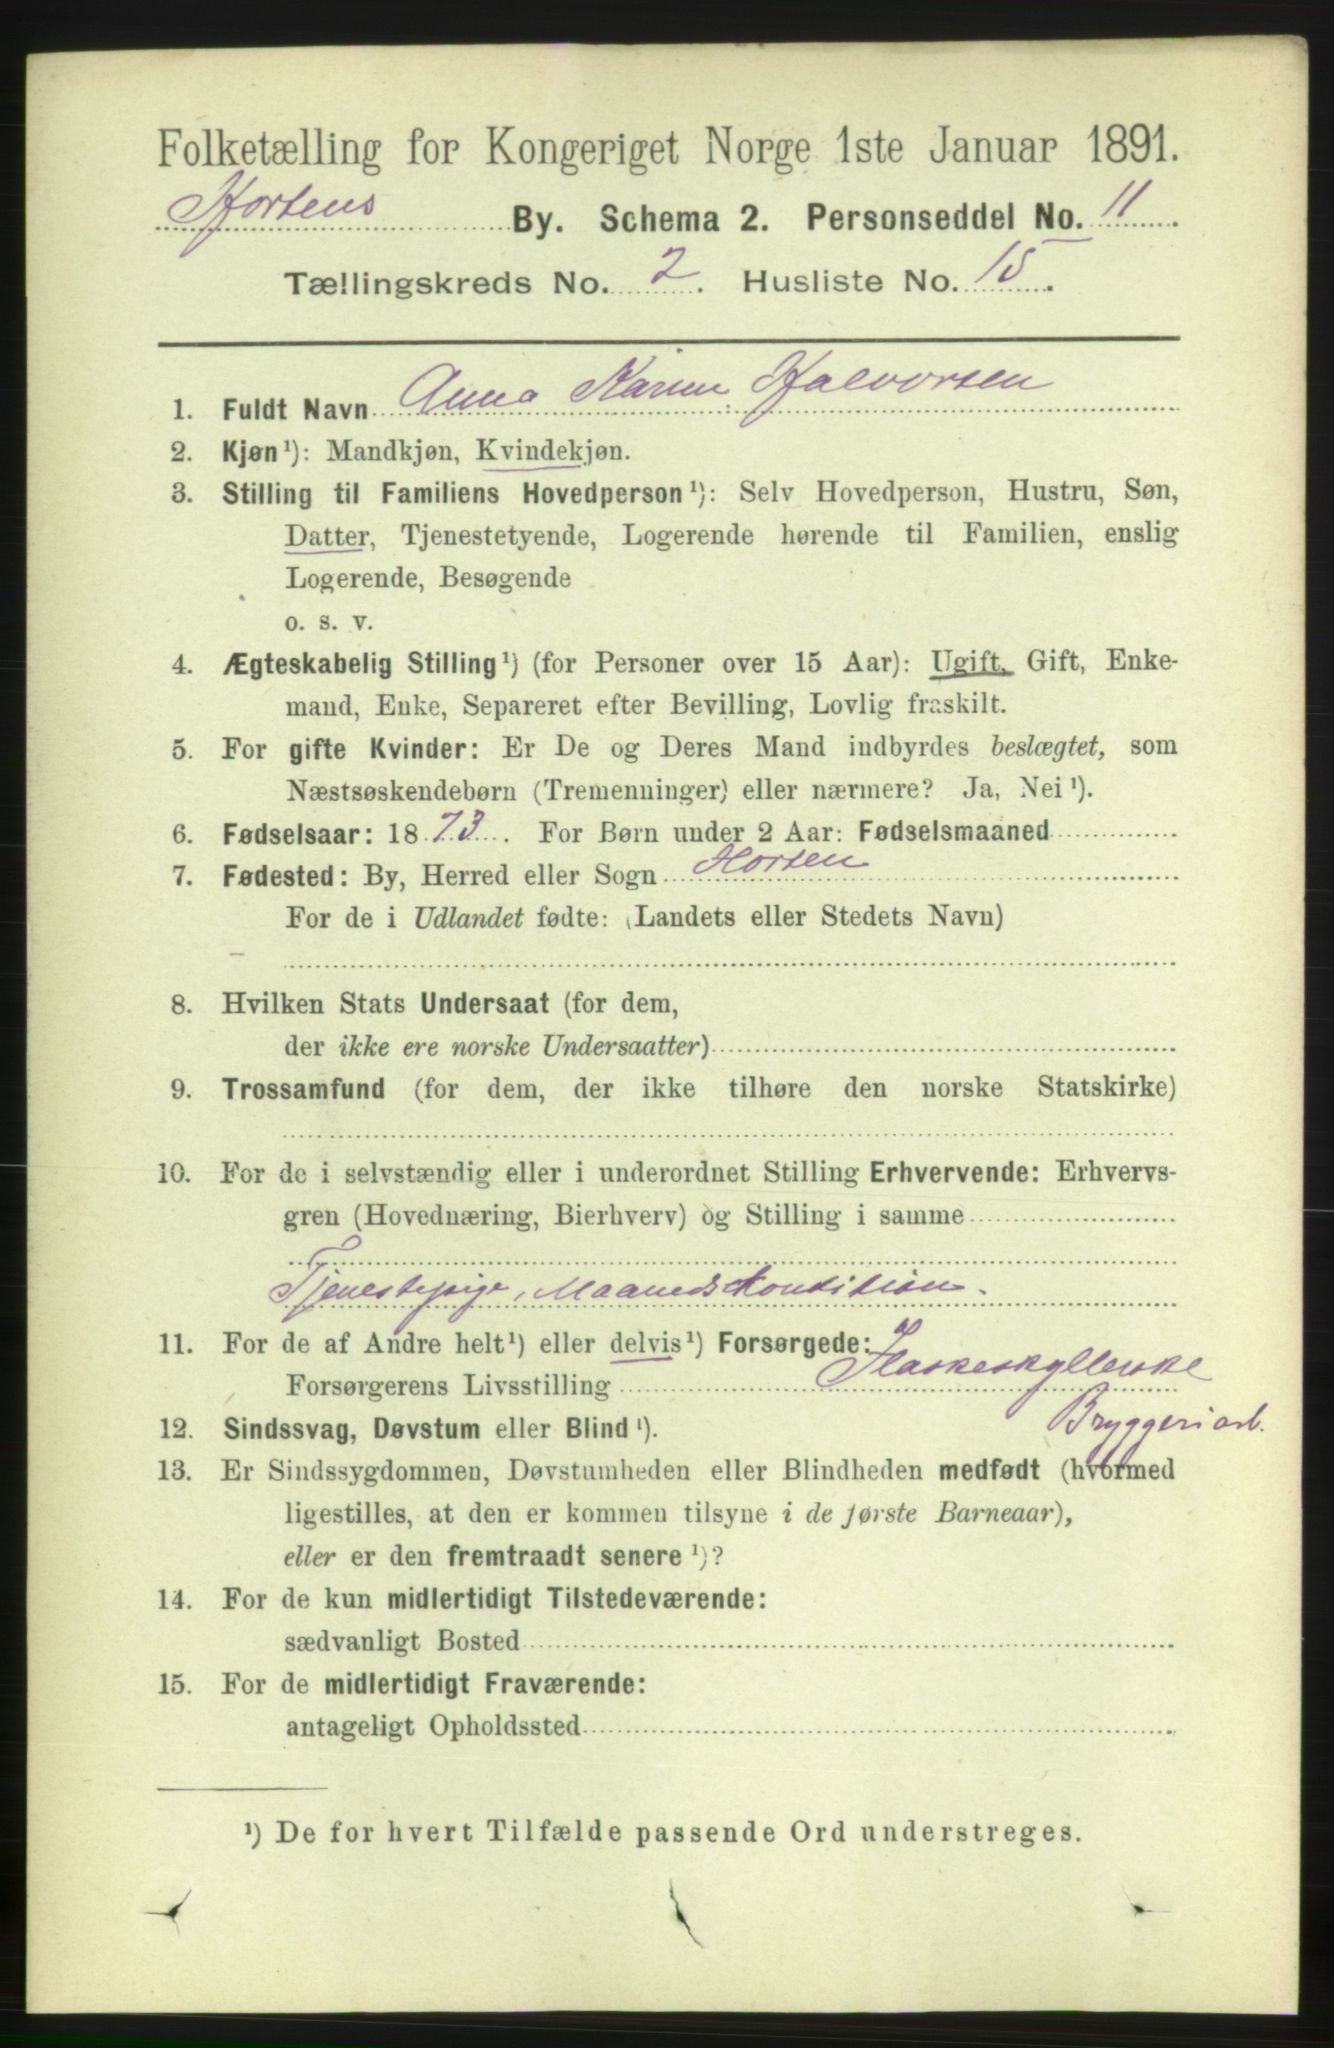 Folketælling for Kongeriget Norge 1ste Januar 1891.
Hortens By. Schema 2. Personseddel No. 11
Tællingskreds No. 2. Husliste No. 15.
1. Fuldt Navn Anna Karine Halvorsen
2. Kjøn¹): Mandkjøn, Kvindekjøn.
3. Stilling til Familiens Hovedperson¹): Selv Hovedperson, Hustru, Søn,
Datter, Tjenestetyende, Logerende hørende til Familien, enslig
Logerende, Besøgende
o. s. v.
4. Ægteskabelig Stilling¹) (for Personer over 15 Aar): Ugift, Gift, Enke-
mand, Enke, Separeret efter Bevilling, Lovlig fraskilt.
5. For gifte Kvinder: Er De og Deres Mand indbyrdes beslægtet, som
Næstsøskendebørn (Tremenninger) eller nærmere? Ja, Nei¹).
6. Fødselsaar: 1873. For Børn under 2 Aar: Fødselsmaaned
7. Fødested: By, Herred eller Sogn Horten
For de i Udlandet fødte: (Landets eller Stedets Navn)
8. Hvilken Stats Undersaat (for dem,
der ikke ere norske Undersaatter)
9. Trossamfund (for dem, der ikke tilhøre den norske Statskirke)
10. For de i selvstændig eller i underordnet Stilling Erhvervende: Erhvervs-
gren (Hovednæring, Bierhverv) og Stilling i samme
Tjenestepige, Maanedskondition.
11. For de af Andre helt¹) eller delvis¹) Forsørgede:
Forsørgerens Livsstilling Flaskeskyllerske
Bryggeriarb.
12. Sindssvag, Døvstum eller Blind¹).
13. Er Sindssygdommen, Døvstumheden eller Blindheden medfødt (hvormed
ligestilles, at den er kommen tilsyne i de første Barneaar),
eller er den fremtraadt senere¹)?
14. For de kun midlertidigt Tilstedeværende:
sædvanligt Bosted
15. For de midlertidigt Fraværende:
antageligt Opholdssted
¹) De for hvert Tilfælde passende Ord understreges.